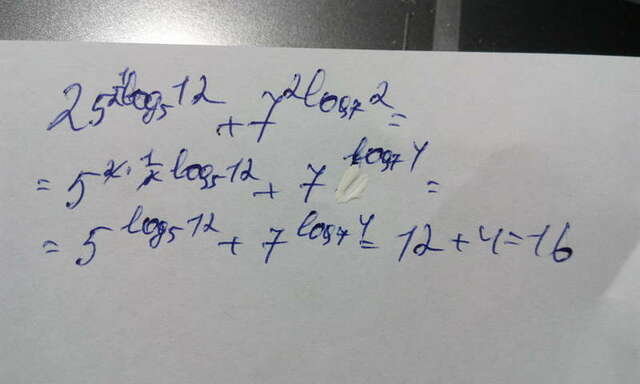 25^{\frac{1}{2}log_5 12} + 7^{2log_7 2} =
= 5^{2 \cdot \frac{1}{2} log_5 12} + 7^{log_7 4} =
= 5^{log_5 12} + 7^{log_7 4} = 12 + 4 = 16